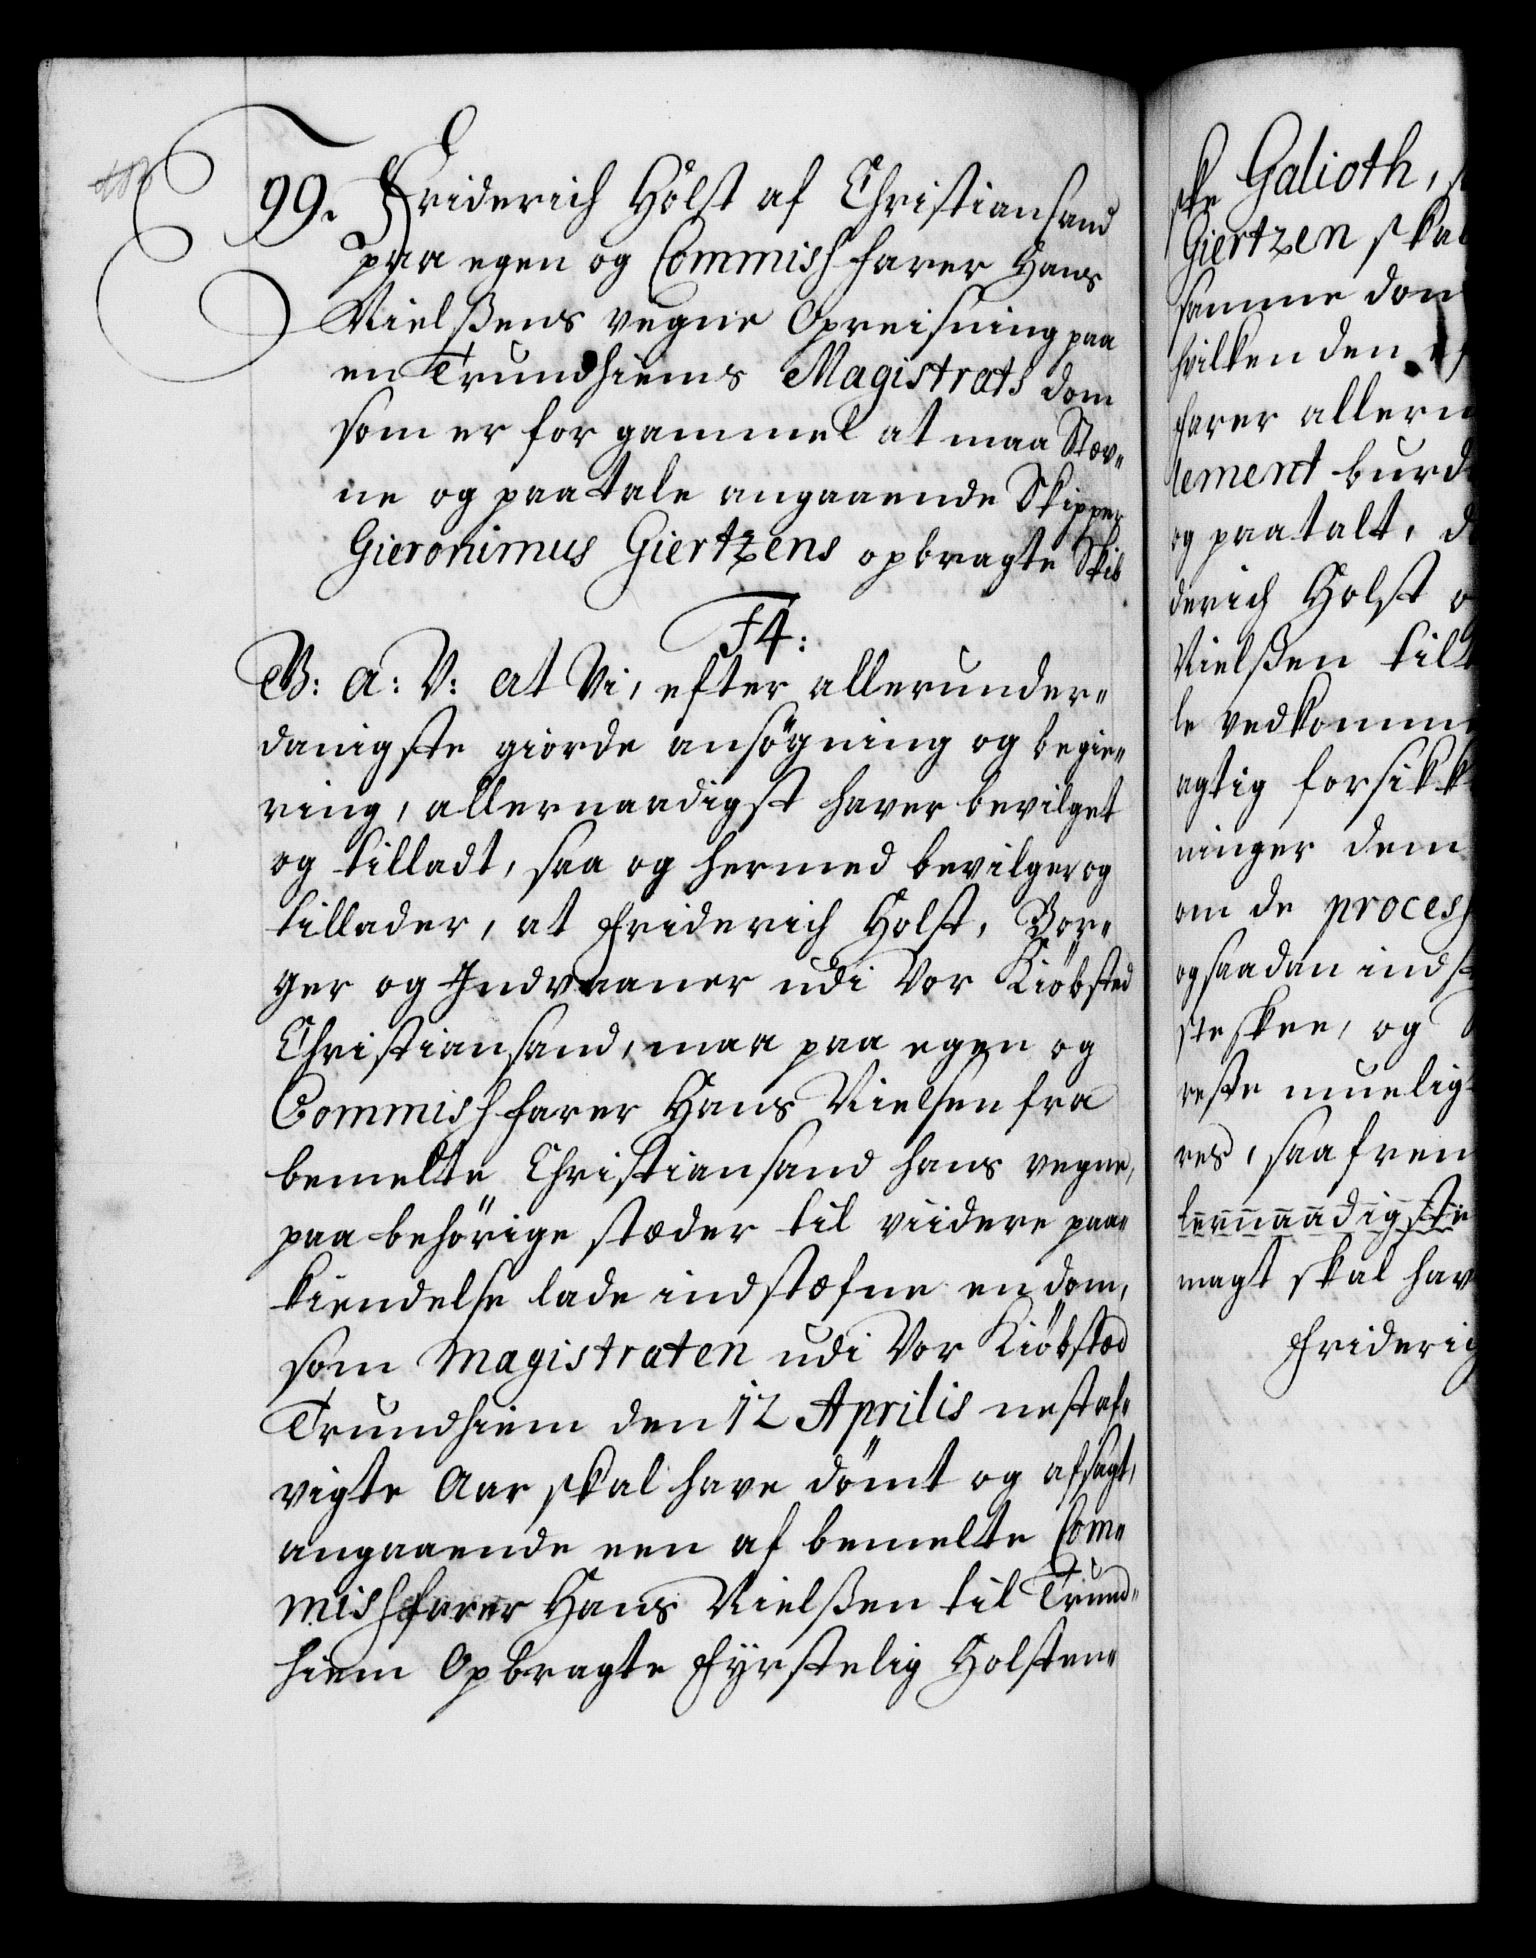 99. Friderich Holst af Christiansand
paa egen og Commishfarer Hans
Nielßens vegne Opreisning paa
en Trundhiems Magistrats dom
som er for gammel at maa Stæv„
ne og paatale angaaende Skipper
Gieronimus Giertzens opbragte Skib
F4:
G: a: V: at Vi, efter allerunder„
danigste giorde ansögning og begie„
ring, allernaadigst haver bevilget
og tilladt, saa og hermed bevilger og
tillader, at Friderich Holst, Bor„
ger og Indvaaner udi Vor Kiöbsted
Christiansand, maa paa egen og
Commishfarer Hans Nielsen fra
bemelte Christiansand hans vegne,
paa behörige stæder til viidere paa„
kiendelse lade indstæfne en dom,
som Magistraten udi Vor Kiöbstæd
Trundhiem den 12 Aprilis nestaf„
vigte Aar skal have dömt og afsagt,
angaaende een af bemelte Com„
mishfarer Hans Nielßen til Trund„
hiem Opbragte Fyrstelig Holsten„
ske Galioth,
Giertzen skal
samme dom
hvilken den
farer allern
lement burde
og paatalt, d
derich Holst o
Nielßen tilt
le vedkomm
agtig forsikk
ninger dem
om de process
og saadan indst
ste skee, og
reste muelig
res, saafrem
lernaadigste
magt skal hav
Friderig